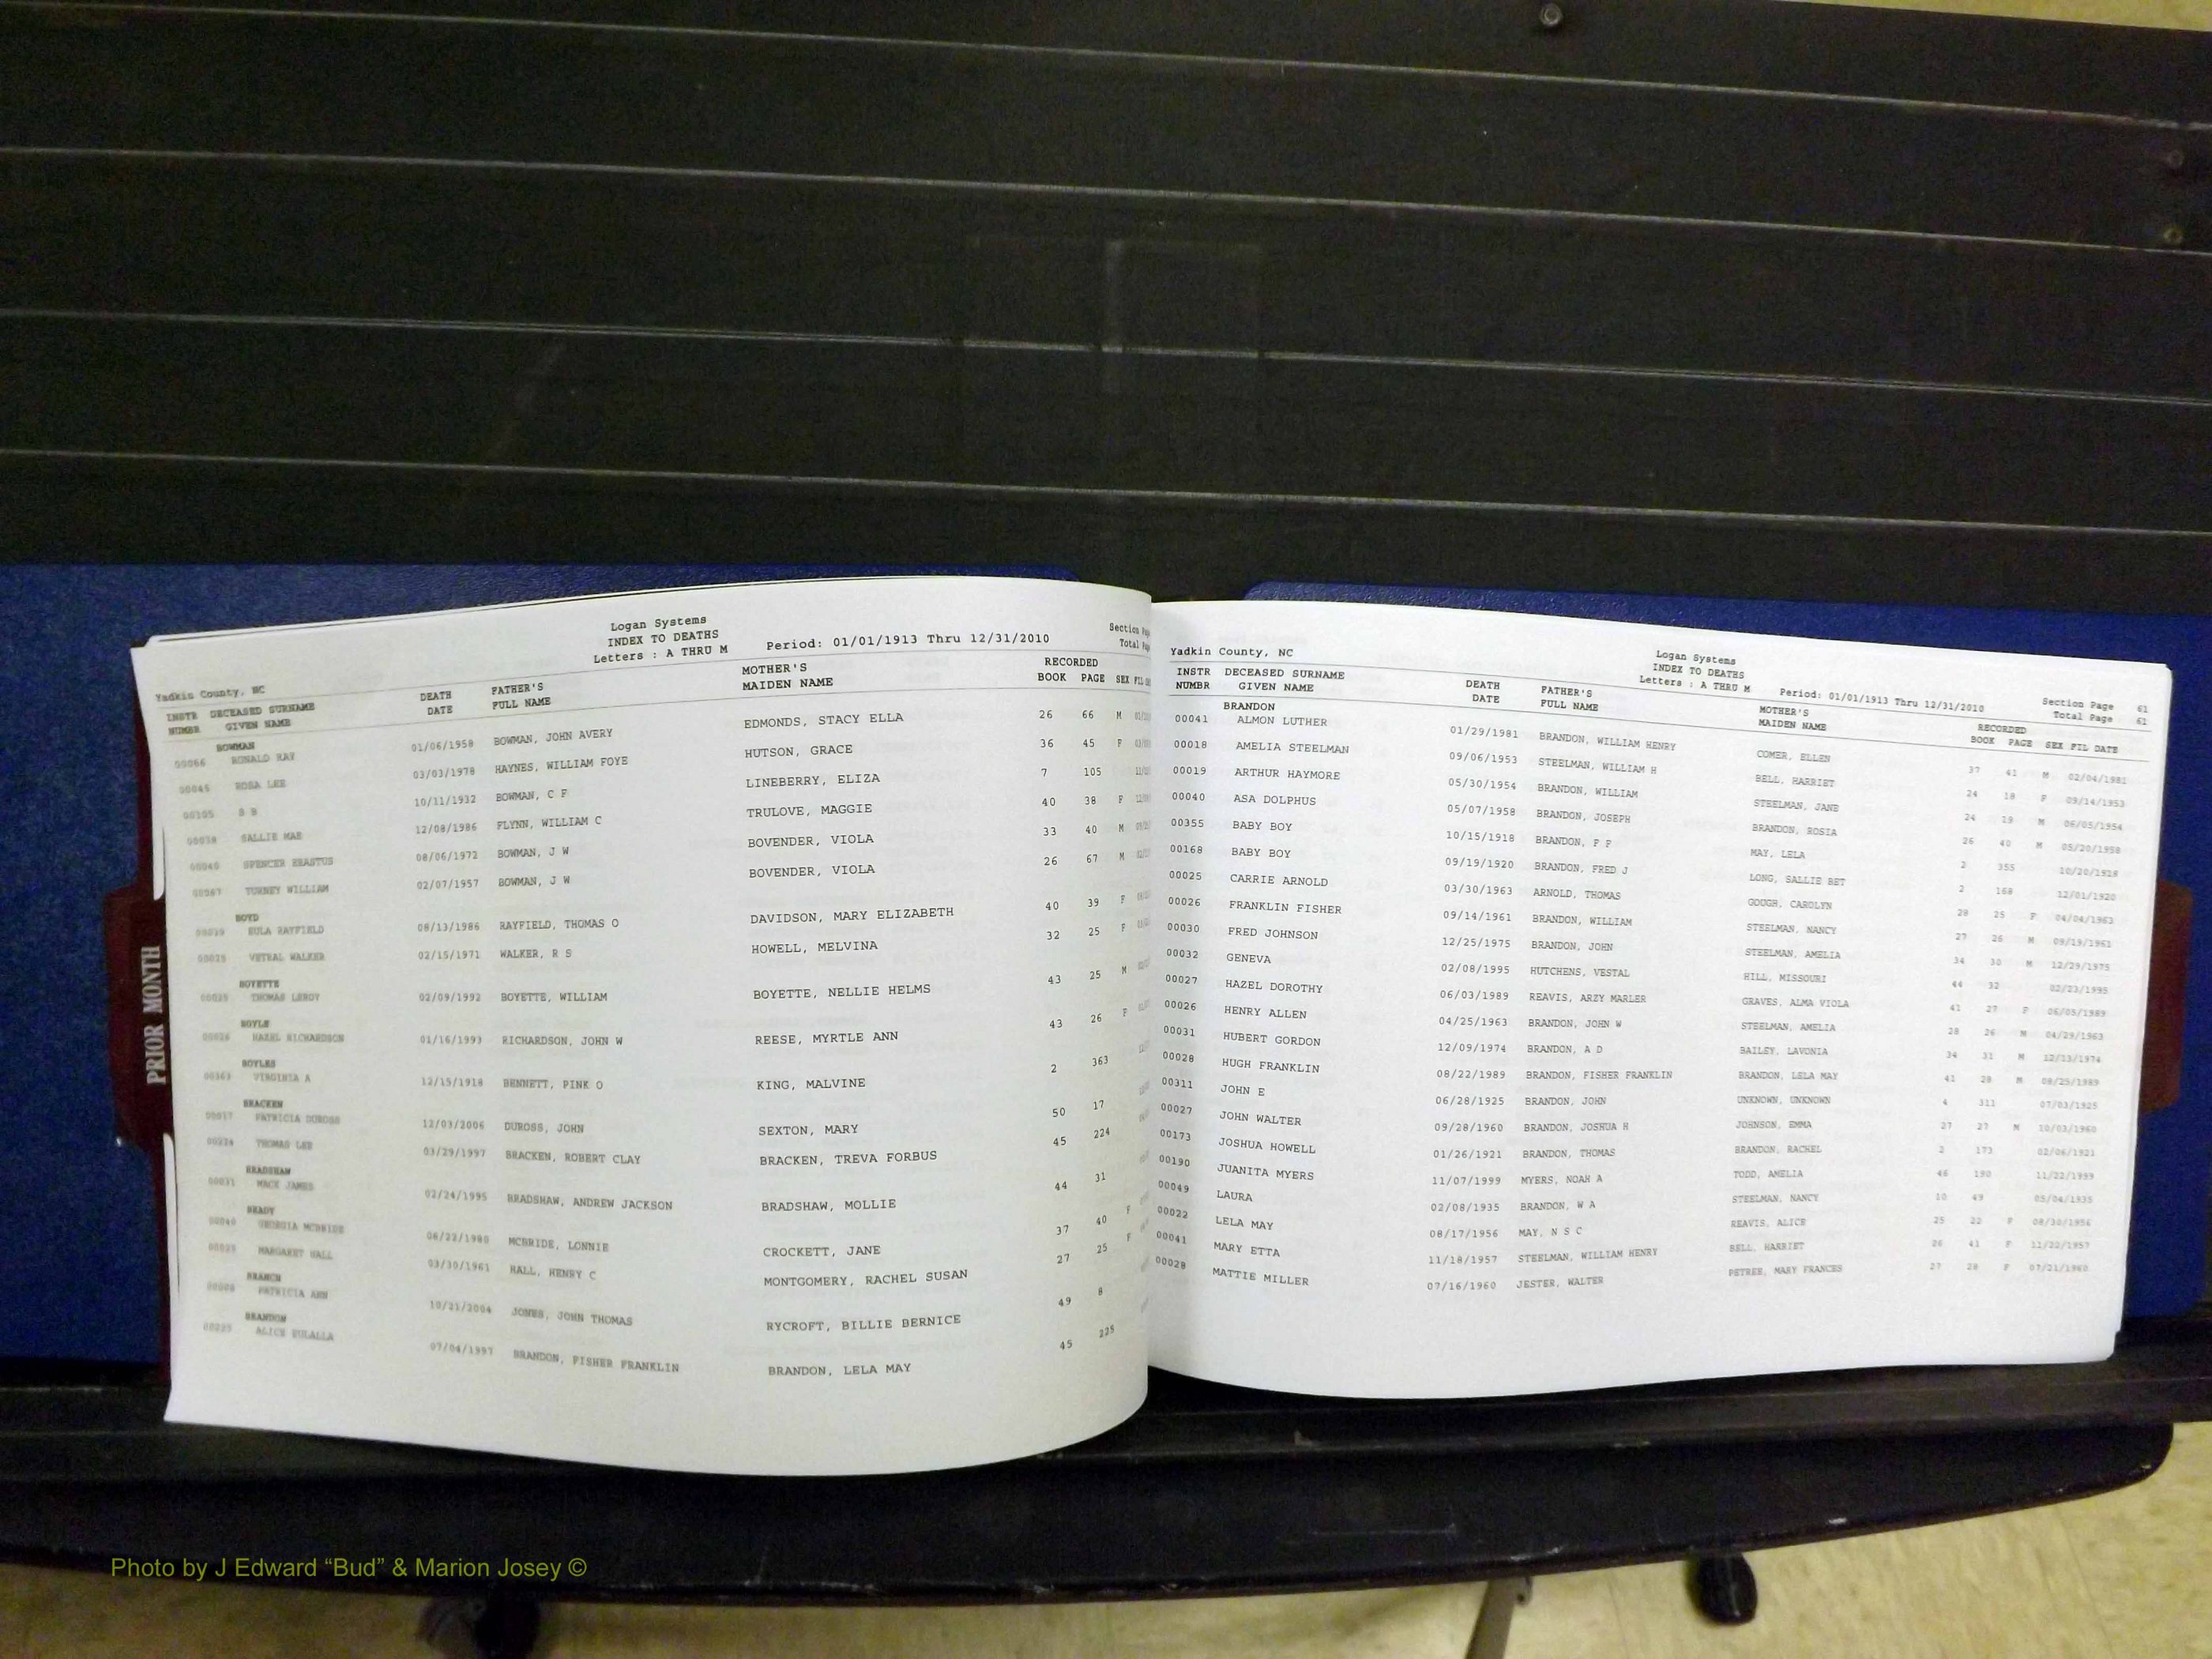 Logan Systems
INDEX TO DEATHS
Letters : A THRU M Period: 01/01/1913 Thru 12/31/2010
Section
Total
Yadkin County, NC
INSTR DECEASED SURNAME DEATH FATHER'S MOTHER'S RECORDED
NUMBR GIVEN NAME DATE FULL NAME MAIDEN NAME BOOK PAGE SEX FIL
BOWMAN
00066 RONALD RAY 01/06/1958 BOWMAN, JOHN AVERY EDMONDS, STACY ELLA 26 66 M
00045 ROSA LEE 03/03/1978 HAYNES, WILLIAM FOYE HUTSON, GRACE 36 45 F
00105 10/11/1932 BOWMAN, C F LINEBERRY, ELIZA 7 105
SALLIE MAE 12/08/1986 FLYNN, WILLIAM C TRULOVE, MAGGIE 40 38 F
00040 SPENCER ERASTUS 08/06/1972 BOWMAN, J W BOVENDER, VIOLA 33 40 M
00067 TURNEY WILLIAM 02/07/1957 BOWMAN, J W BOVENDER, VIOLA 26 67 M
BOYD
00039 EULA RAYFIELD 08/13/1986 RAYFIELD, THOMAS O DAVIDSON, MARY ELIZABETH 40 39 F
00025 VETRAL WALKER 02/15/1971 WALKER, R S HOWELL, MELVINA 32 25 F
BOYETTE
00025 THOMAS LEROY 02/09/1992 BOYETTE, WILLIAM BOYETTE, NELLIE HELMS 43 25 M
BOYLE
00026 HAZEL RICHARDSON 01/16/1993 RICHARDSON, JOHN W REESE, MYRTLE ANN 43 26 F
BOYLES
00363 VIRGINIA A 12/15/1918 BENNETT, PINK O KING, MALVINE 2 363
BRACKEN
00017 PATRICIA DUROSS 12/03/2006 DUROSS, JOHN SEXTON, MARY 50 17
00224 THOMAS LEE 03/29/1997 BRACKEN, ROBERT CLAY BRACKEN, TREVA FORBUS 45 224
BRADSHAW
00031 MACK JAMES 02/24/1995 BRADSHAW, ANDREW JACKSON BRADSHAW, MOLLIE 44 31
BRADY
00040 GEORGIA MCBRIDE 06/22/1980 MCBRIDE, LONNIE CROCKETT, JANE 37 40 F
00025 MARGARET HALL 03/30/1961 HALL, HENRY C MONTGOMERY, RACHEL SUSAN 27 25 F
BRANCH
00008 PATRICIA ANN 10/21/2004 JONES, JOHN THOMAS RYCROFT, BILLIE BERNICE 49 8
BRANDON
00225 ALICE EULALLA 07/04/1997 BRANDON, FISHER FRANKLIN BRANDON, LELA MAY 45 225
PRIOR MONTH
Yadkin County, NC
Logan Systems
INDEX TO DEATHS
Letters : A THRU M Period: 01/01/1913 Thru 12/31/2010
Section Page 61
Total Page 61
INSTR DECEASED SURNAME DEATH FATHER'S MOTHER'S RECORDED
NUMBR GIVEN NAME DATE FULL NAME MAIDEN NAME BOOK PAGE SEX FIL DATE
BRANDON
00041 ALMON LUTHER 01/29/1981 BRANDON, WILLIAM HENRY COMER, ELLEN 37 41 M 02/04/1981
00018 AMELIA STEELMAN 09/06/1953 STEELMAN, WILLIAM H BELL, HARRIET 24 18 F 09/14/1953
00019 ARTHUR HAYMORE 05/30/1954 BRANDON, WILLIAM STEELMAN, JANE 24 19 M 06/05/1954
00040 ASA DOLPHUS 05/07/1958 BRANDON, JOSEPH BRANDON, ROSIA 26 40 M 05/20/1958
00355 BABY BOY 10/15/1918 BRANDON, F F MAY, LELA 2 355 10/20/1918
00168 BABY BOY 09/19/1920 BRANDON, FRED J LONG, SALLIE BET 2 168 12/01/1920
00025 CARRIE ARNOLD 03/30/1963 ARNOLD, THOMAS GOUGH, CAROLYN 28 25 F 04/04/1963
00026 FRANKLIN FISHER 09/14/1961 BRANDON, WILLIAM STEELMAN, NANCY 27 26 M 09/19/1961
00030 FRED JOHNSON 12/25/1975 BRANDON, JOHN STEELMAN, AMELIA 34 30 M 12/29/1975
00032 GENEVA 02/08/1995 HUTCHENS, VESTAL HILL, MISSOURI 44 32 02/23/1995
00027 HAZEL DOROTHY 06/03/1989 REAVIS, ARZY MARLER GRAVES, ALMA VIOLA 41 27 F 06/05/1989
00026 HENRY ALLEN 04/25/1963 BRANDON, JOHN W STEELMAN, AMELIA 28 26 M 04/29/1963
00031 HUBERT GORDON 12/09/1974 BRANDON, A D BAILEY, LAVONIA 34 31 M 12/13/1974
00028 HUGH FRANKLIN 08/22/1989 BRANDON, FISHER FRANKLIN BRANDON, LELA MAY 41 28 M 08/25/1989
00311 JOHN E 06/28/1925 BRANDON, JOHN UNKNOWN, UNKNOWN 4 311 07/03/1925
00027 JOHN WALTER 09/28/1960 BRANDON, JOSHUA H JOHNSON, EMMA 27 27 M 10/03/1960
00173 JOSHUA HOWELL 01/26/1921 BRANDON, THOMAS BRANDON, RACHEL 2 173 02/06/1921
00190 JUANITA MYERS 11/07/1999 MYERS, NOAH A TODD, AMELIA 46 190 11/22/1999
00049 LAURA 02/08/1935 BRANDON, W A STEELMAN, NANCY 10 49 05/04/1935
00022 LELA MAY 08/17/1956 MAY, N S C REAVIS, ALICE 25 22 F 08/30/1956
00041 MARY ETTA 11/18/1957 STEELMAN, WILLIAM HENRY BELL, HARRIET 26 41 F 11/22/1957
00028 MATTIE MILLER 07/16/1960 JESTER, WALTER PETREE, MARY FRANCES 27 28 F 07/21/1960
Photo by J Edward “Bud” & Marion Josey ©